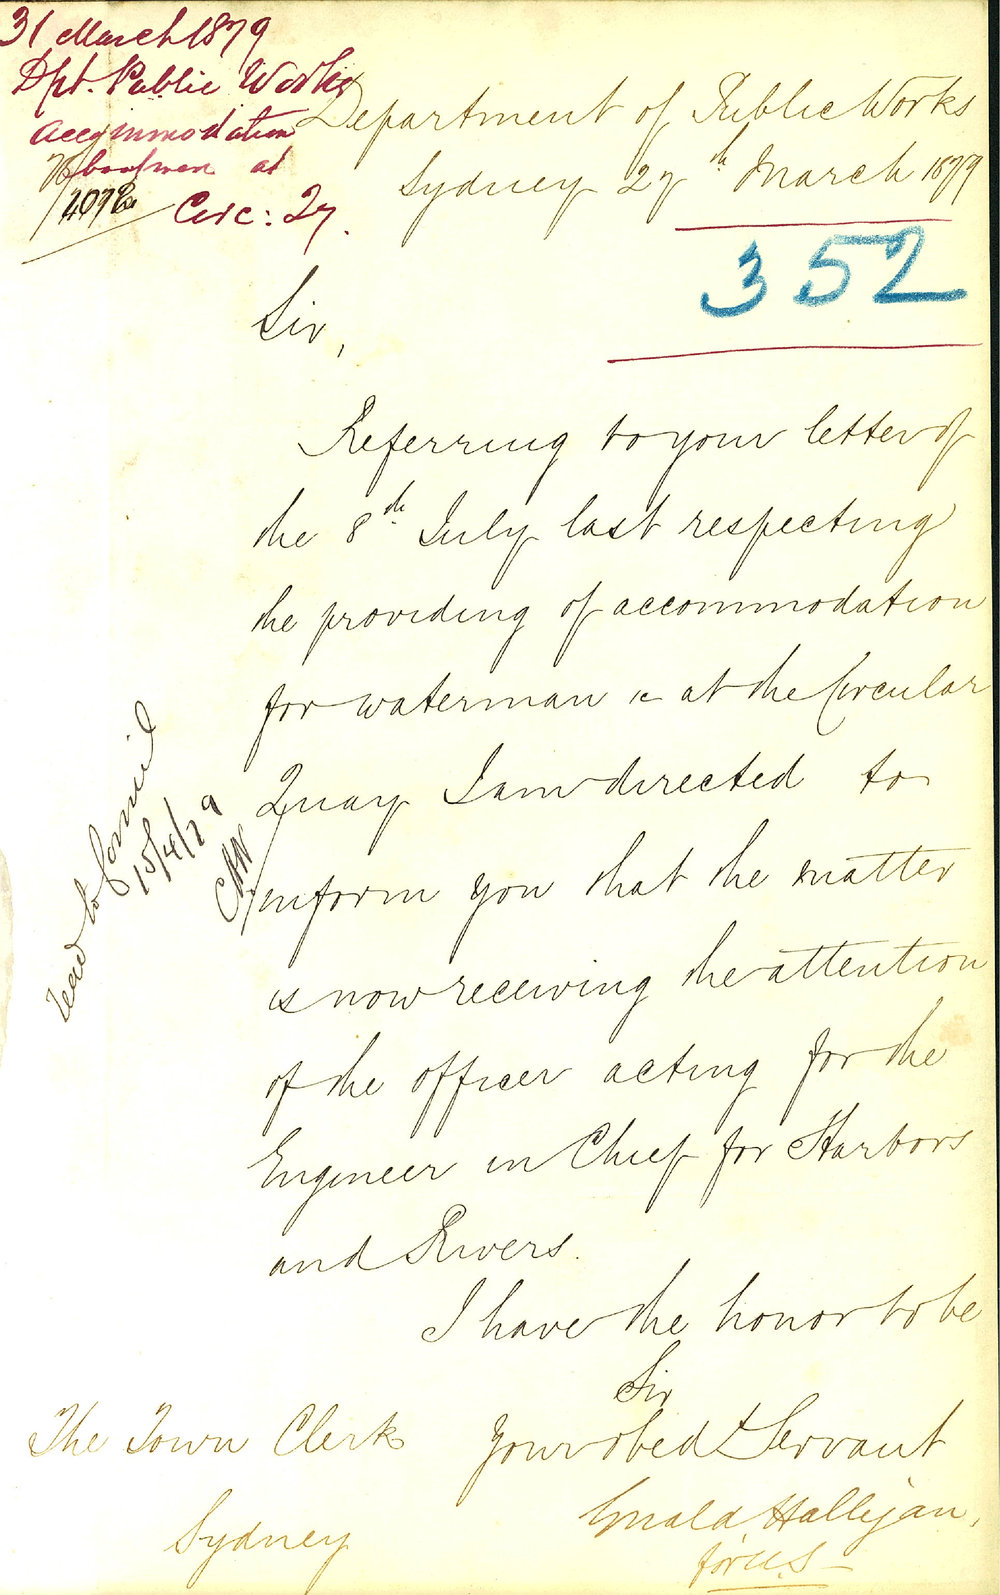 31 March 1879
Dpt. Public Works
accommodation
boatmen at
Circ: Qy.
Department of Public Works
Sydney 27th March 1879
352
Sir,
Referring to your letter of
the 8th July last respecting
the providing of accommodation
for waterman &c at the Circular
Quay I am directed to
inform you that the matter
is now receiving the attention
of the officer acting for the
Engineer in Chief for Harbors
and Rivers.
I have the honor to be
Sir
Your obedt Servant
Gerald Halligan,
for U.S
The Town Clerk
Sydney
read to Council
15/4/79